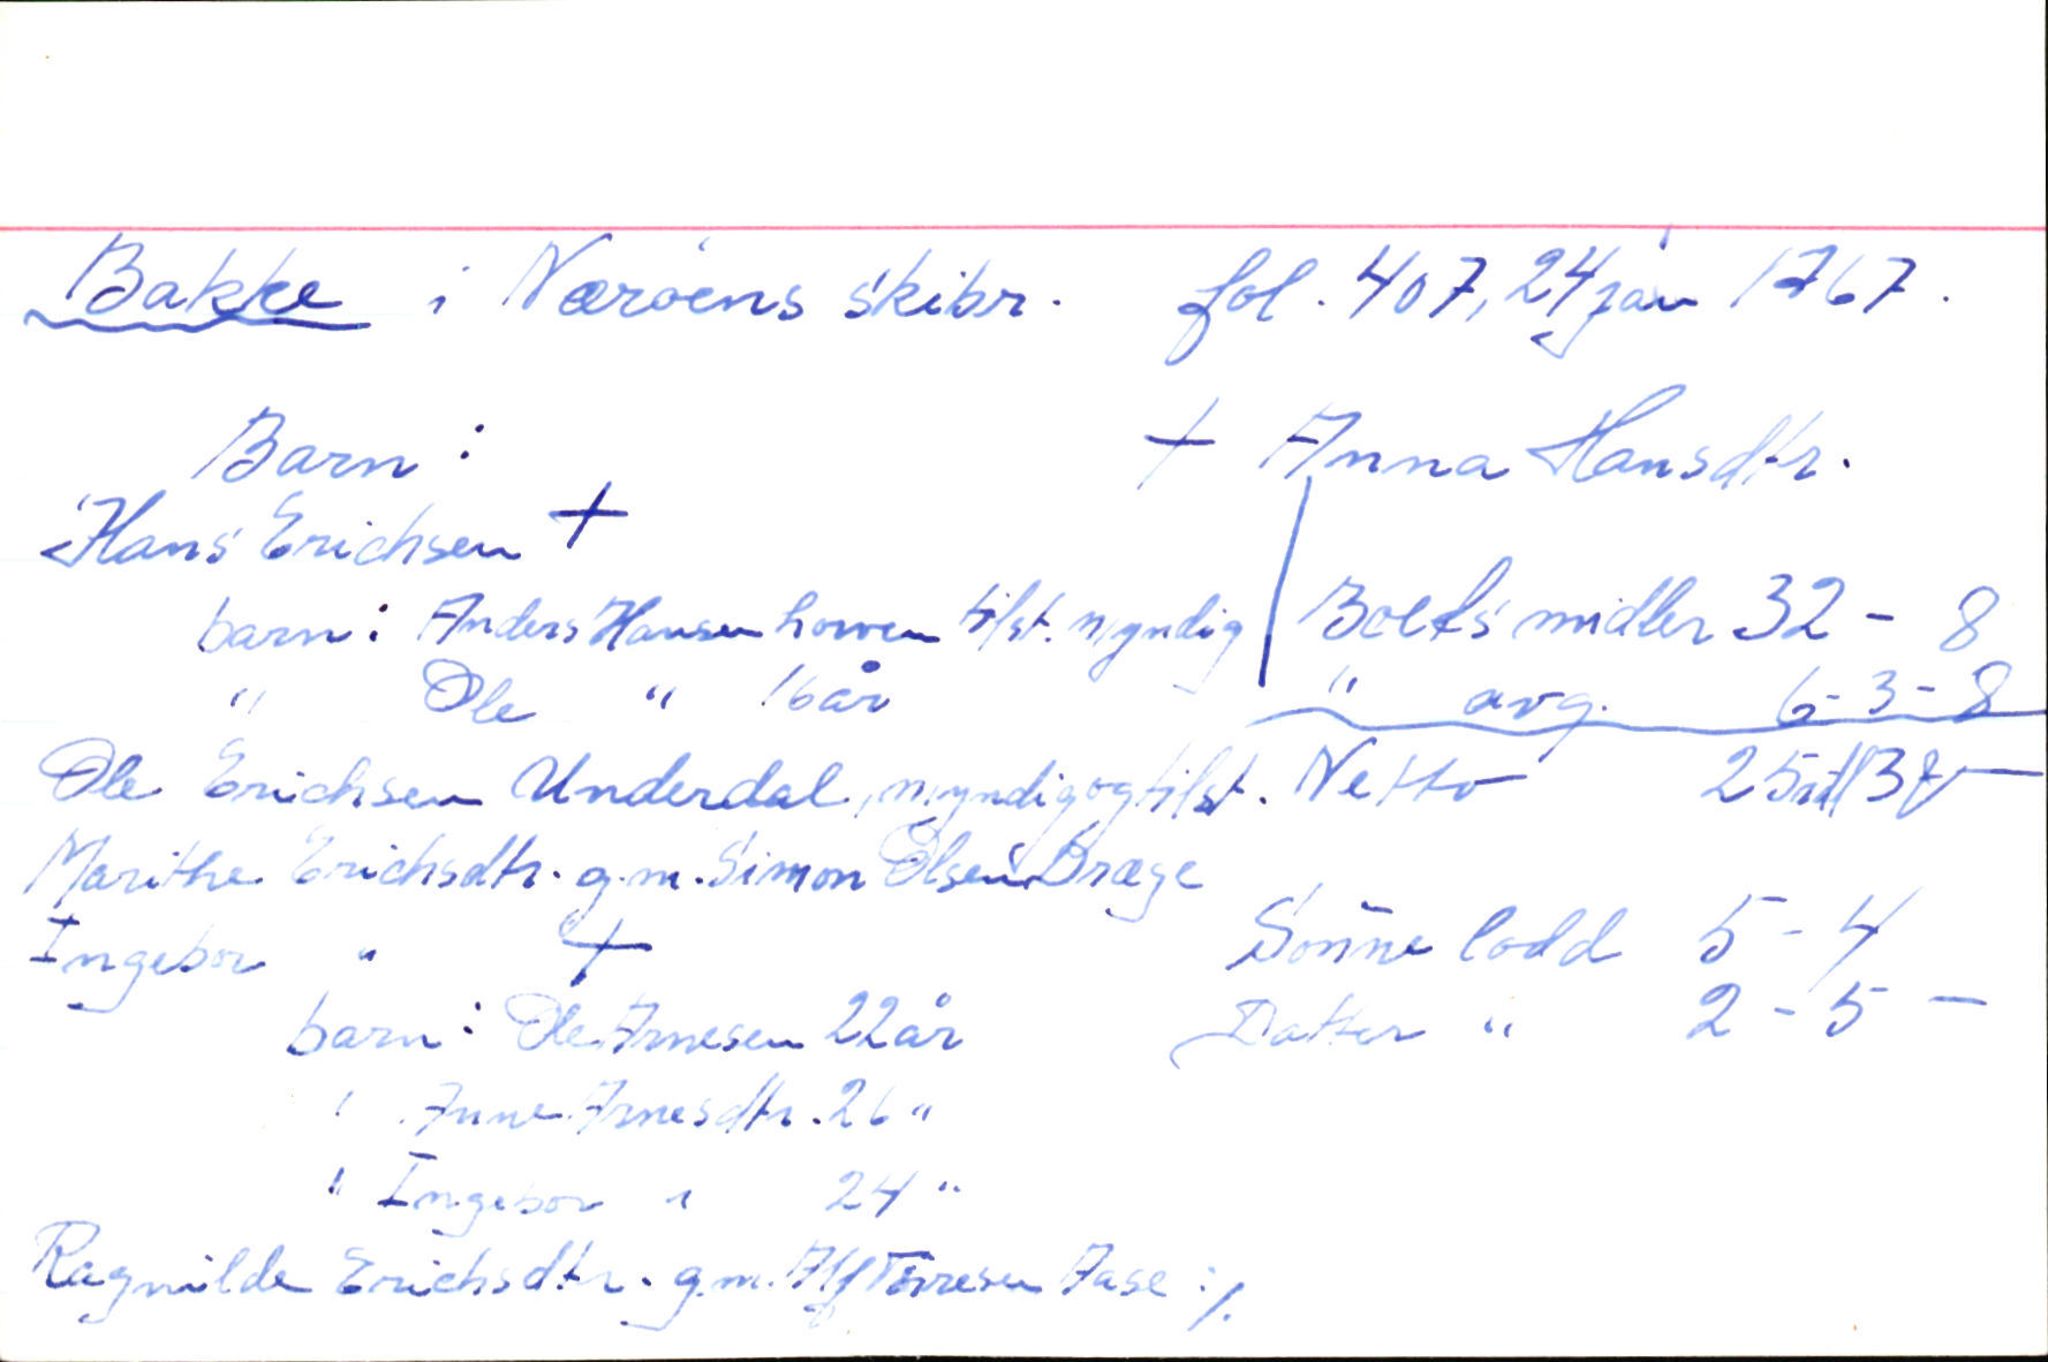 Bakke i Nærøens skibr. fol. 407, 24 jan 1767.
Barn: † Anna Hansdtr.
Hans Erichsen †
barn: Anders Hansen hoven tilst. myndig Boets midler 32 - 8
" Ole " 16 år " avg. 6 - 3 - 8
Ole Erichsen Underdal, myndig og tilst. Netto 25 rdl 3 —
Marithe Erichsdtr. g.m. Simon Olsen Dræge
Ingebor " † Sønne lodd 5 - 4
barn: Ole Arnesen 22 år Datter " 2 - 5 -
" Anne Arnesdtr. 26 "
" Ingebor " 24 "
Ragnilde Erichsdtr. g.m. Alf Torresen Aase :/.